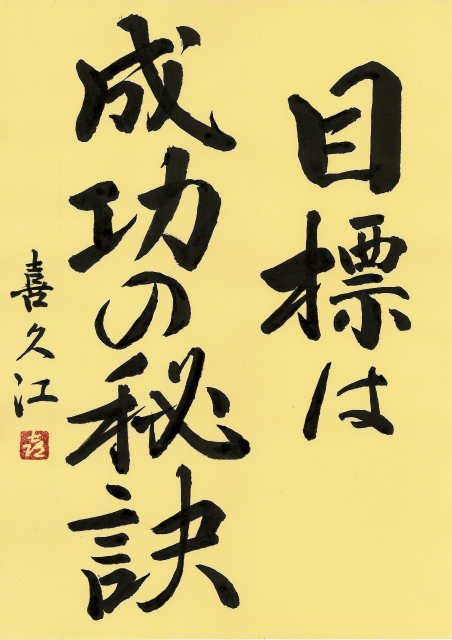 目標は
成功の秘訣
喜久江